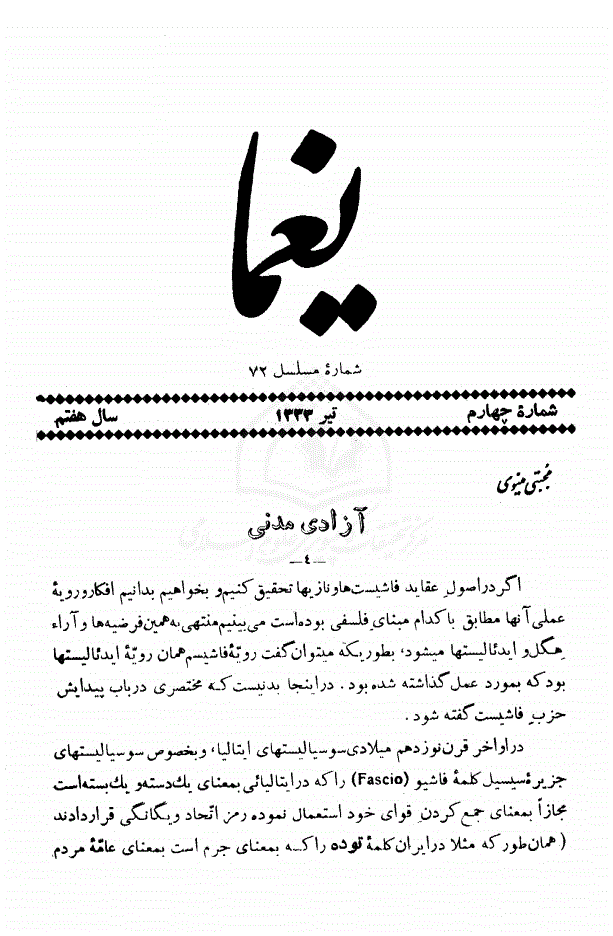 یغما
شمارهٔ مسلسل ۷۲
شمارهٔ چهارم تیر ۱۳۳۳ سال هفتم
مجتبی مینوی
آزادی مدنی
ـ٤ـ
اگر در اصولِ عقاید فاشیست‌ها و نازیها تحقیق کنیم و بخواهیم بدانیم افکار و رویهٔ
عملی آنها مطابق با کدام مبنای فلسفی بوده است می‌بینیم منتهی به همین فرضیه‌ها و آراء
هگل و ایدئالیستها میشود، بطوریکه میتوان گفت رویّهٔ فاشیسم همان رویّهٔ ایدئالیستها
بود که بمورد عمل گذاشته شده بود . در اینجا بد نیست که مختصری در باب پیدایش
حزبِ فاشیست گفته شود .
در اواخر قرن نوزدهم میلادی سوسیالیستهای ایتالیا، و بخصوص سوسیالیستهای
جزیرهٔ سیسیل کلمهٔ فاشیو (Fascio) را که در ایتالیائی بمعنای یك دسته و یك بسته است
مجازاً بمعنای جمع کردنِ قوای خود استعمال نموده رمز اتّحاد و یگانگی قرار دادند
( همان‌طور که مثلا در ایران کلمهٔ توده را که بمعنای جرم است بمعنای عامّهٔ مردم